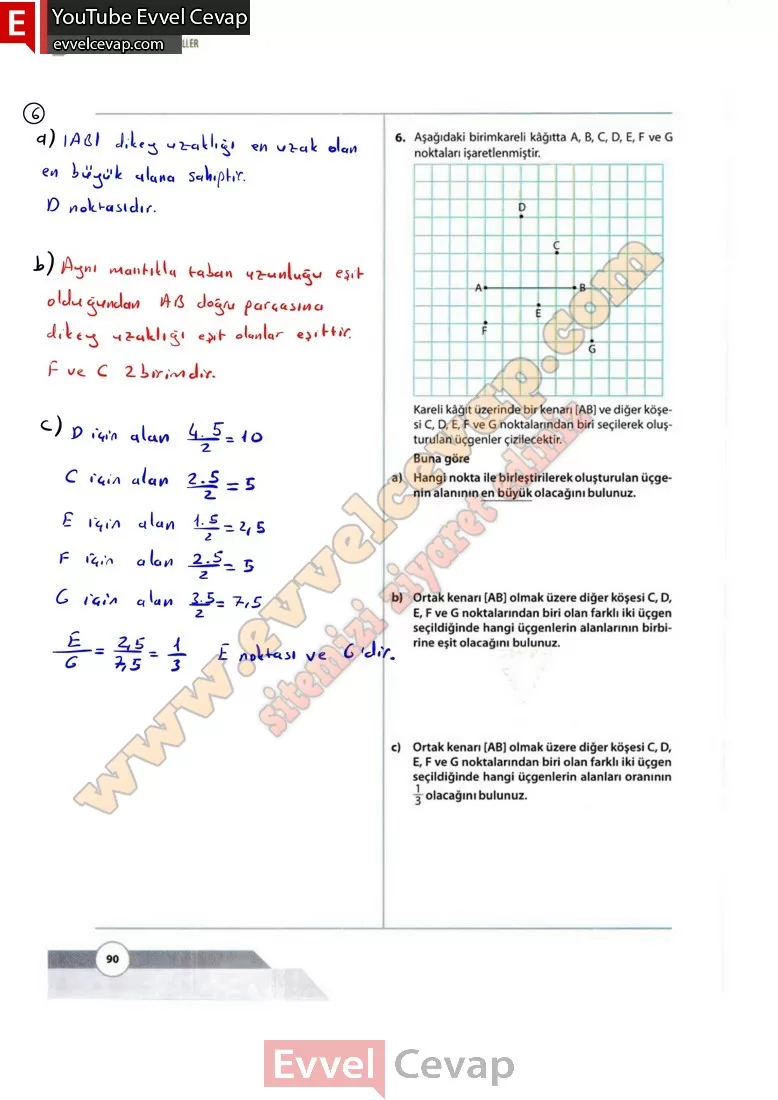 E YouTube Evvel Cevap
evvelcevap.com
LLER
6
a) |AB| dikey uzaklığı en uzak olan
en büyük alana sahiptir.
D noktasıdır.
b) Aynı mantıkla taban uzunluğu eşit
olduğundan AB doğru parçasına
dikey uzaklığı eşit olanlar eşittir.
F ve C 2 birimdir.
c) D için alan 4.5/2 = 10
C için alan 2.5/2 = 5
E için alan 1.5/2 = 2,5
F için alan 2.5/2 = 5
G için alan 3.5/2 = 7,5
E/G = 2,5/7,5 = 1/3 E noktası ve G'dir.
6. Aşağıdaki birimkareli kâğıtta A, B, C, D, E, F ve G
noktaları işaretlenmiştir.
D
C
A B
E
F
G
Kareli kâğıt üzerinde bir kenarı [AB] ve diğer köşe-
si C, D, E, F ve G noktalarından biri seçilerek oluş-
turulan üçgenler çizilecektir.
Buna göre
a) Hangi nokta ile birleştirilerek oluşturulan üçge-
nin alanının en büyük olacağını bulunuz.
b) Ortak kenarı [AB] olmak üzere diğer köşesi C, D,
E, F ve G noktalarından biri olan farklı iki üçgen
seçildiğinde hangi üçgenlerin alanlarının birbi-
rine eşit olacağını bulunuz.
c) Ortak kenarı [AB] olmak üzere diğer köşesi C, D,
E, F ve G noktalarından biri olan farklı iki üçgen
seçildiğinde hangi üçgenlerin alanları oranının
1/3 olacağını bulunuz.
www.evvelcevap.com
sitemizi ziyaret ediniz
90
Evvel Cevap